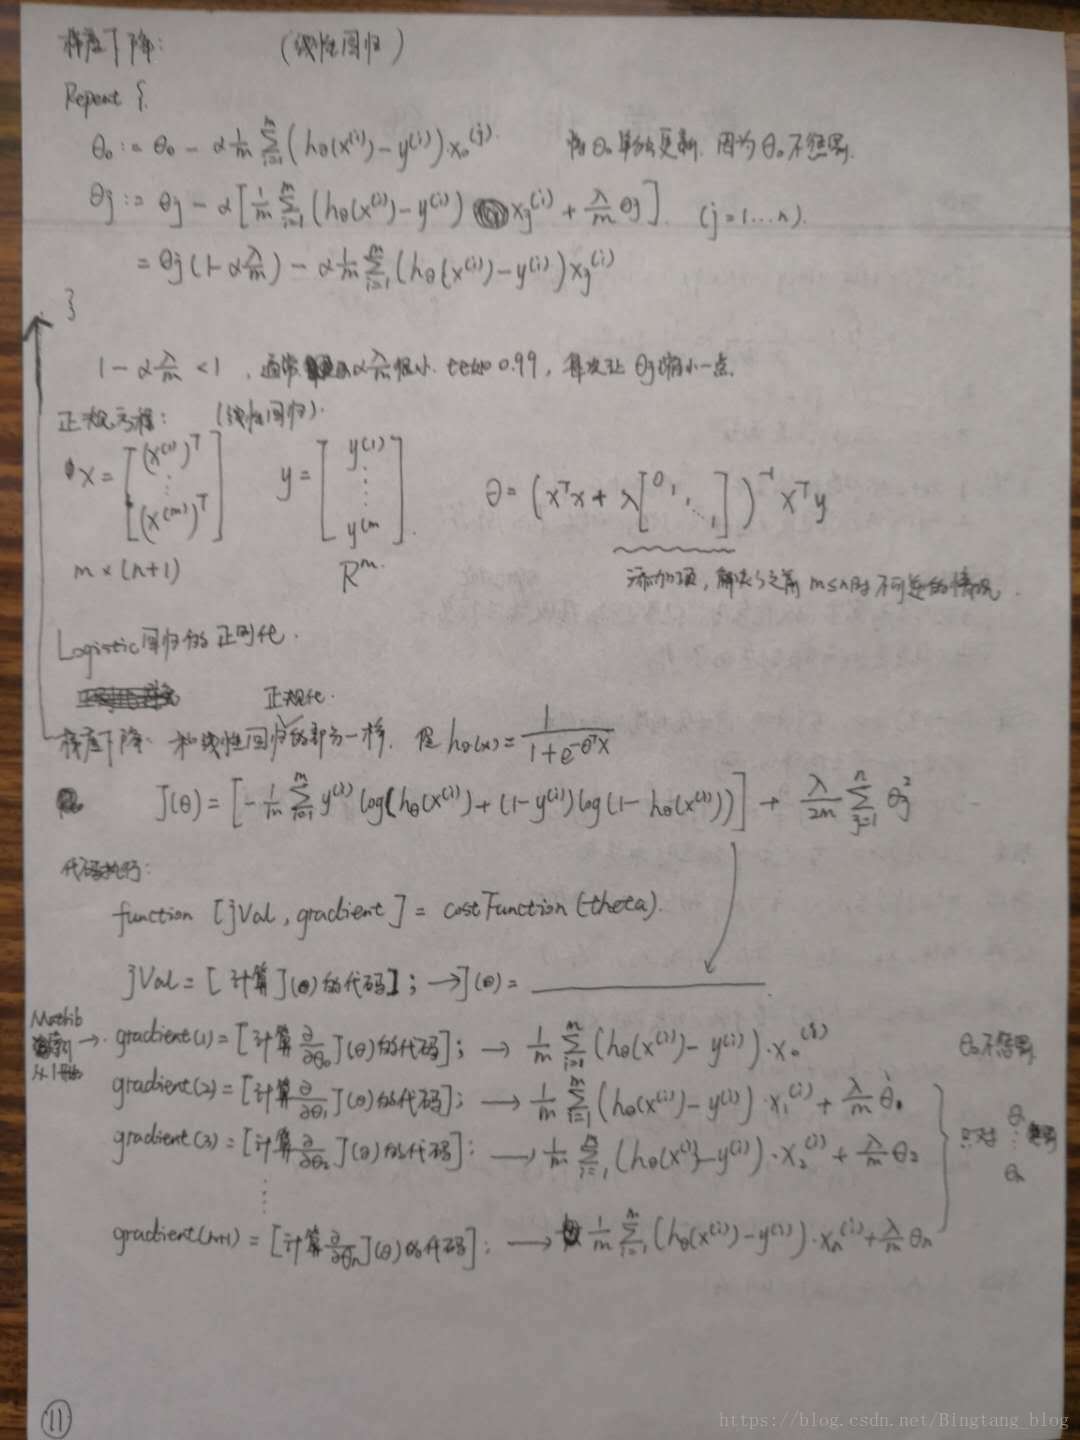 梯度下降: (线性回归)
Repeat {
θ₀ := θ₀ - α 1/m Σ_{i=1}^{m} (hθ(x⁽ⁱ⁾) - y⁽ⁱ⁾) x₀⁽ⁱ⁾ 将θ₀单独更新. 因为θ₀不惩罚.
θj := θj - α [1/m Σ_{i=1}^{m} (hθ(x⁽ⁱ⁾) - y⁽ⁱ⁾) xj⁽ⁱ⁾ + λ/m θj]. (j=1...n).
= θj (1-α λ/m) - α 1/m Σ_{i=1}^{m} (hθ(x⁽ⁱ⁾) - y⁽ⁱ⁾) xj⁽ⁱ⁾
}
1 - α λ/m < 1 , 通常 α λ/m 很小. 比如 0.99, 每次让 θj 缩小一点.
正规方程: (线性回归).
X = [(x⁽¹⁾)ᵀ ⋮ (x⁽ᵐ⁾)ᵀ] y = [y⁽¹⁾ ⋮ y⁽ᵐ] θ = (xᵀx + λ[0 1 ⋱ 1])⁻¹ xᵀy
m × (n+1) Rᵐ. 添加项, 解决了之前 m≤n时 不可逆的情况.
Logistic回归的正则化.
正规化.
梯度下降: 和线性回归的部分一样. 但 hθ(x) = 1/(1+e^{-θᵀx})
J(θ) = [-1/m Σ_{i=1}^{m} y⁽ⁱ⁾ log(hθ(x⁽ⁱ⁾) + (1-y⁽ⁱ⁾) log(1-hθ(x⁽ⁱ⁾))] + λ/2m Σ_{j=1}^{n} θj²
代码执行:
function [jVal, gradient] = costFunction(theta).
jVal = [计算J(θ)的代码]; → J(θ) = ______.
Matlib
从1开始
→ gradient(1) = [计算 ∂/∂θ₀ J(θ)的代码]; → 1/m Σ_{i=1}^{m} (hθ(x⁽ⁱ⁾) - y⁽ⁱ⁾)·x₀⁽ⁱ⁾ θ₀不惩罚.
gradient(2) = [计算 ∂/∂θ₁ J(θ)的代码]; → 1/m Σ_{i=1}^{m} (hθ(x⁽ⁱ⁾) - y⁽ⁱ⁾)·x₁⁽ⁱ⁾ + λ/m θ
gradient(3) = [计算 ∂/∂θ₂ J(θ)的代码]: → 1/m Σ_{i=1} (hθ(x⁽ⁱ⁾) - y⁽ⁱ⁾)·x₂⁽ⁱ⁾ + λ/m θ₂
只对 θ₁ ⋮ θn
⋮
gradient(n+1) = [计算 ∂/∂θn J(θ)的代码]: → 1/m Σ_{i=1}^{m} (hθ(x⁽ⁱ⁾) - y⁽ⁱ⁾)·xn⁽ⁱ⁾ + λ/m θn
11
https://blog.csdn.net/Bingtang_blog